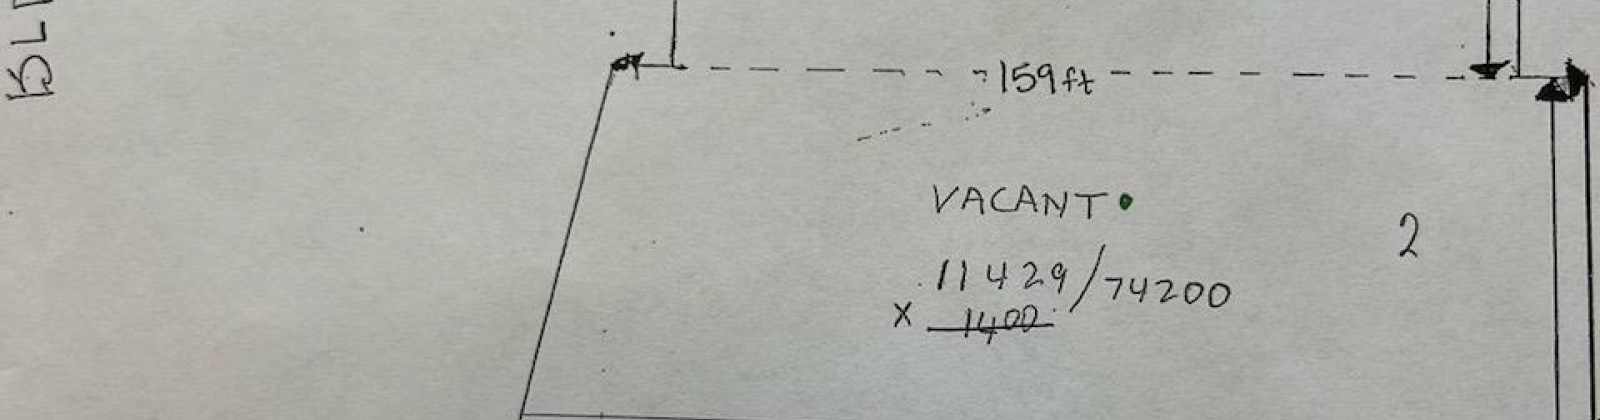 159ft
VACANT
2
11429/74200
x 1400